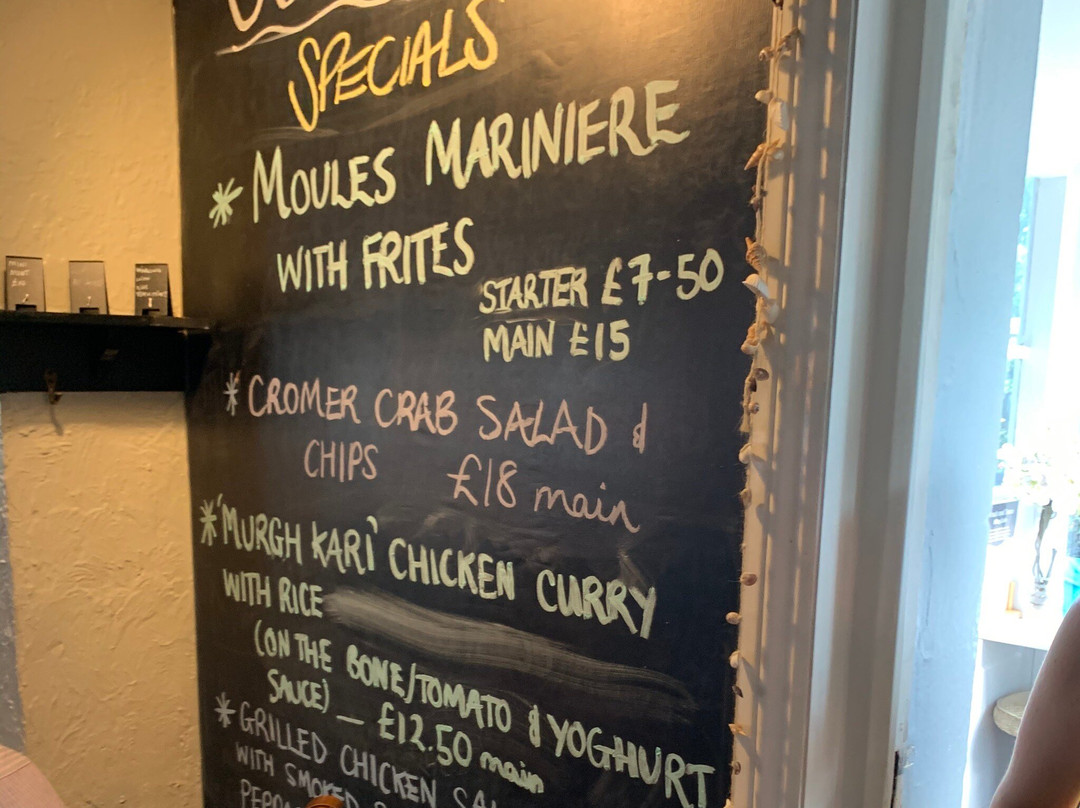 SPECIALS
* MOULES MARINIERE
WITH FRITES
STARTER £7-50
MAIN £15
* CROMER CRAB SALAD &
CHIPS £18 main
* 'MURGH KARI' CHICKEN CURRY
WITH RICE
(ON THE BONE/TOMATO & YOGHURT
SAUCE) — £12.50 main
* GRILLED CHICKEN
WITH SMOKED